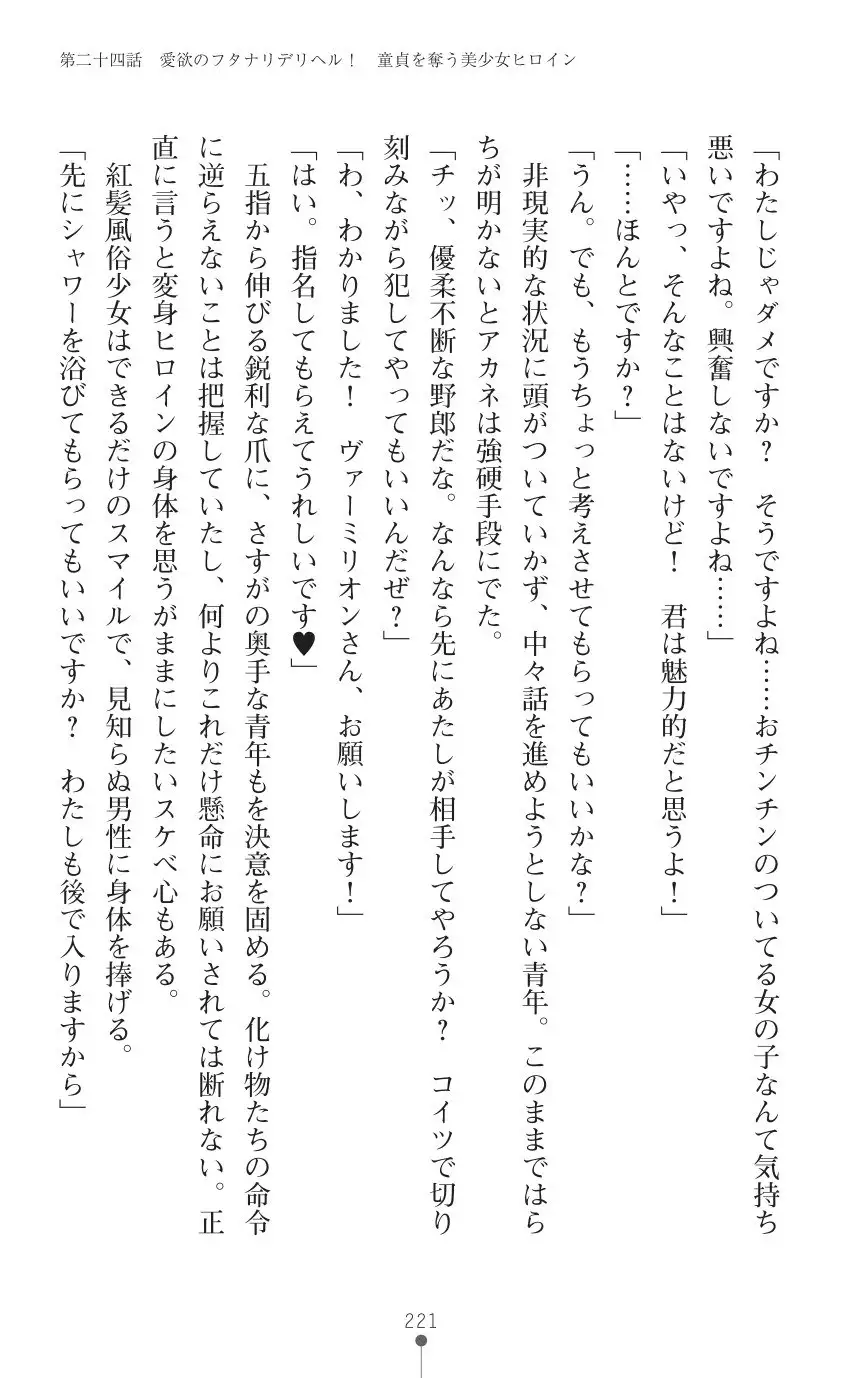 第二十四話　愛欲のフタナリデリヘル！　童貞を奪う美少女ヒロイン
「わたしじゃダメですか？　そうですよね……おチンチンのついてる女の子なんて気持ち
悪いですよね。興奮しないですよね……」
「いやっ、そんなことはないけど！　君は魅力的だと思うよ！」
「……ほんとですか？」
「うん。でも、もうちょっと考えさせてもらってもいいかな？」
　非現実的な状況に頭がついていかず、中々話を進めようとしない青年。このままではら
ちが明かないとアカネは強硬手段にでた。
「チッ、優柔不断な野郎だな。なんなら先にあたしが相手してやろうか？　コイツで切り
刻みながら犯してやってもいいんだぜ？」
「わ、わかりました！　ヴァーミリオンさん、お願いします！」
「はい。指名してもらえてうれしいです♥」
　五指から伸びる鋭利な爪に、さすがの奥手な青年もを決意を固める。化け物たちの命令
に逆らえないことは把握していたし、何よりこれだけ懸命にお願いされては断れない。正
直に言うと変身ヒロインの身体を思うがままにしたいスケベ心もある。
　紅髪風俗少女はできるだけのスマイルで、見知らぬ男性に身体を捧げる。
「先にシャワーを浴びてもらってもいいですか？　わたしも後で入りますから」
221